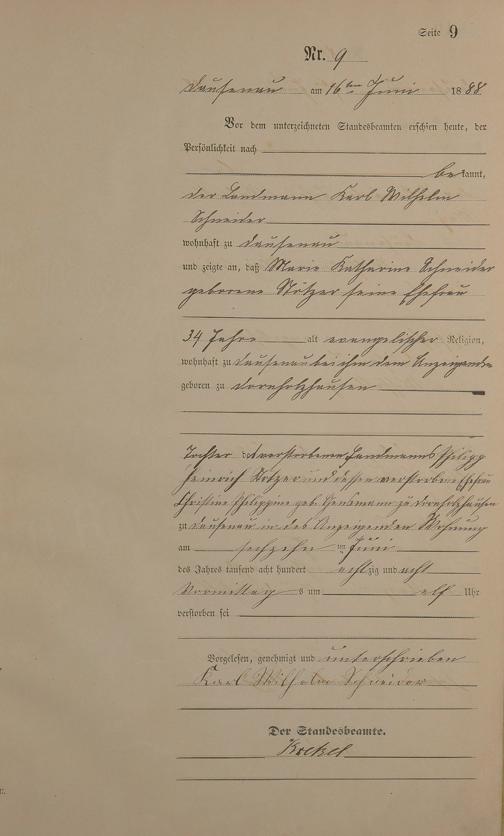 Seite 9
Nr. 9
Dausenau am 16ten Juni 1888
Vor dem unterzeichneten Standesbeamten erschien heute, der
Persönlichkeit nach
bekannt,
der Landmann Karl Wilhelm
Schneider
wohnhaft zu Dausenau
und zeigte an, daß Marie Katharine Schneider
geborene Stötzer seine Ehefrau
34 Jahre alt evangelischer Religion,
wohnhaft zu Dausenau bei ihm dem Anzeigenden
geboren zu Dornholzhausen
Tochter des verstorbenen Landmanns Philipp
Heinrich Stötzer und dessen verstorbene Ehefrau
Christine Philippine geb. zu Dornholzhausen
zu Dausenau in des Anzeigenden Wohnung
am sechzehn ten Juni
des Jahres tausend acht hundert achtzig und acht
Vormittags um elf Uhr
verstorben sei
Vorgelesen, genehmigt und unterschrieben
Karl Wilhelm Schneider
Der Standesbeamte.